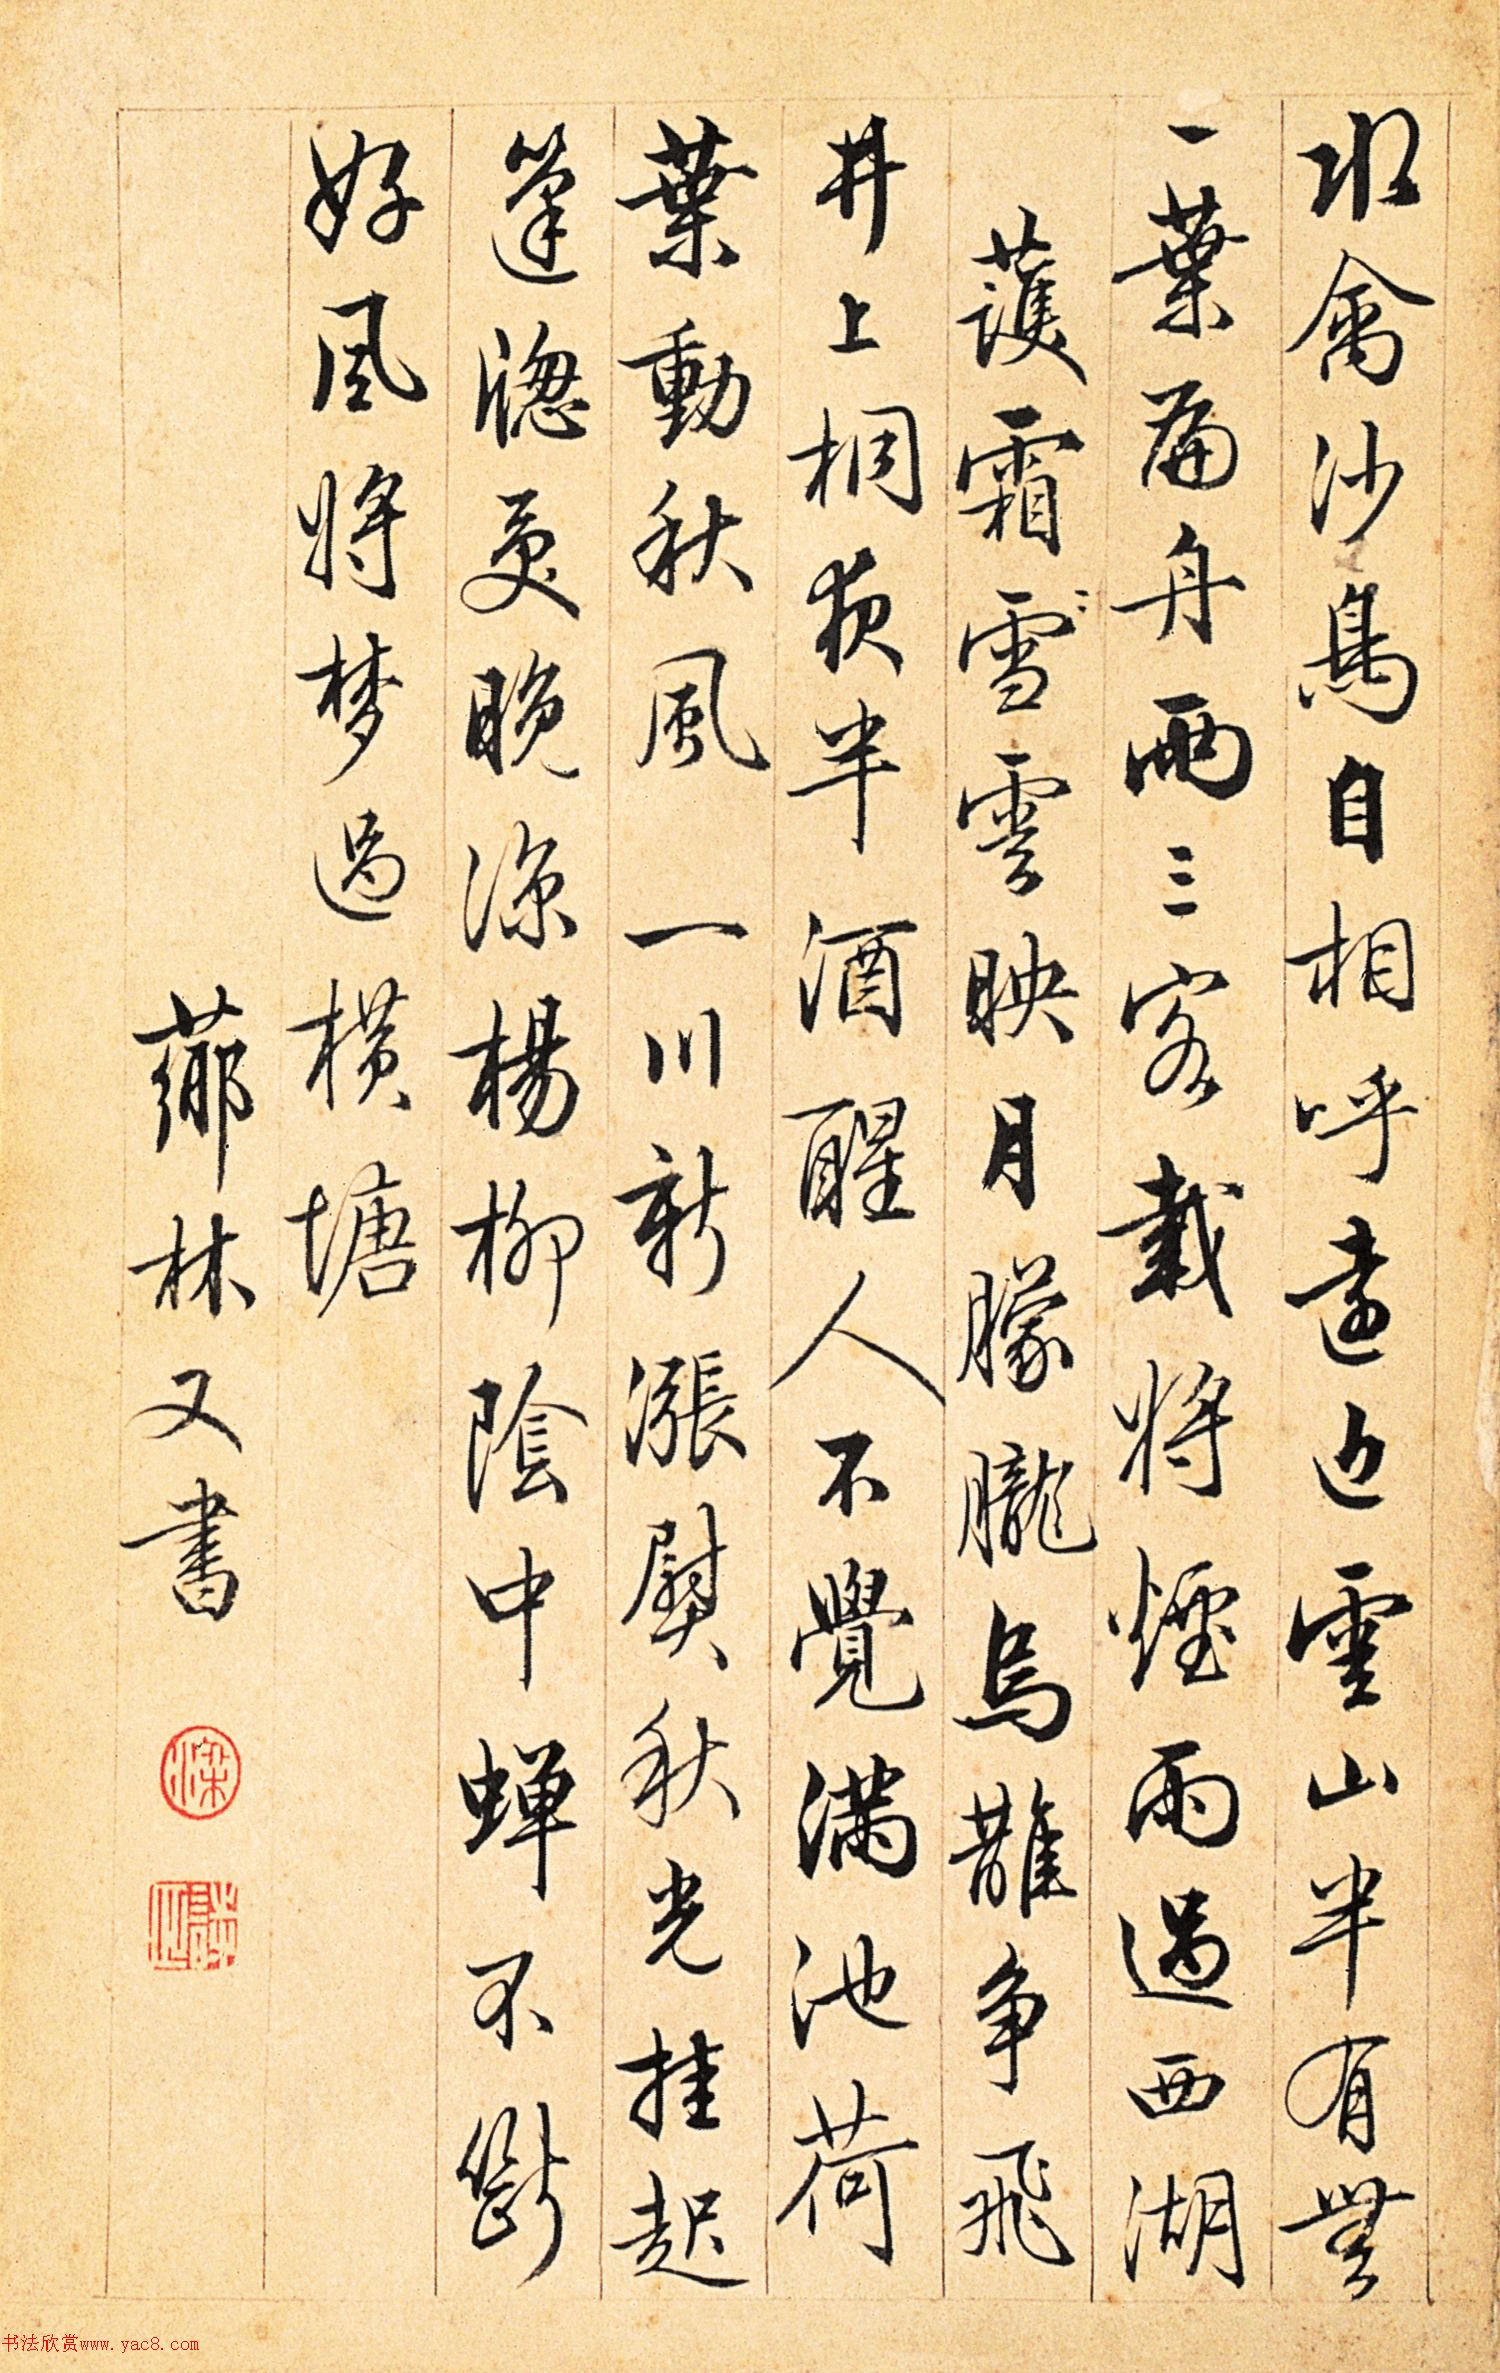 水禽沙鳥自相呼遠近雲山半有無
一葉扁舟兩三客載將煙雨過西湖
護霜雪雲映月朦朧烏鵲爭飛
井上桐夜半酒醒人不覺滿池荷
葉動秋風 一川新漲熨秋光挂起
篷牕受晚涼楊柳陰中蟬不斷
好風將梦過橫塘
薌林又書
书法欣赏www.yac8.com